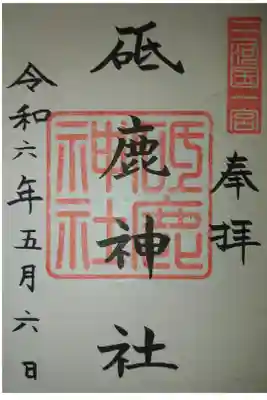 三河国一宮
奉拝
砥鹿神社
砥鹿神社
令和六年五月六日